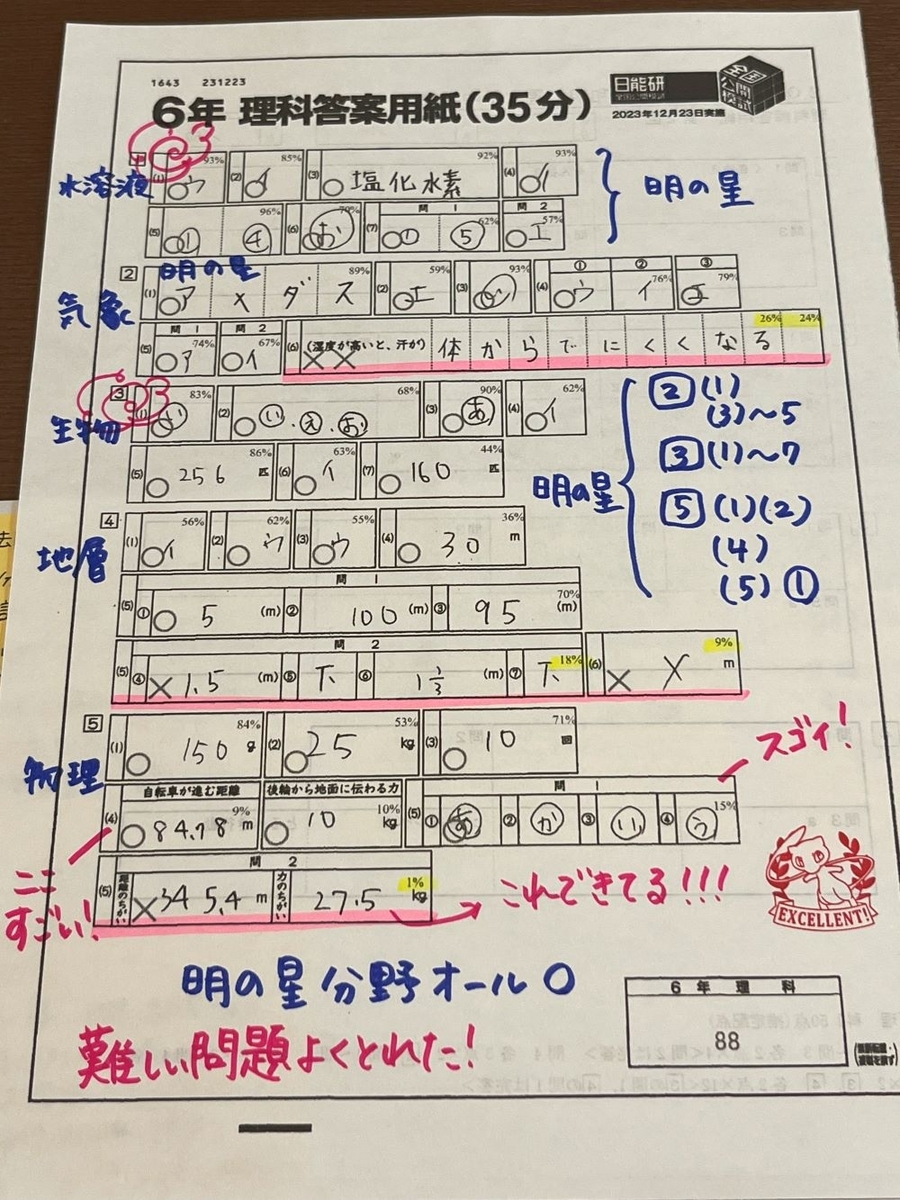 1643 231223
6年 理科答案用紙(35分)
日能研
全国公開模試
2023年12月23日実施
水溶液
1 (1) ○ウ 93% (2) ○イ 85% (3) ○ 塩化水素 92% (4) ○イ 93%
明の星
(5) ○① ④ 96% (6) ○お (7) 問1 ○① ⑤ 62% 問2 ○エ 57%
明の星
気象
2 (1) ○ア メ ダ ス 89% (2) ○エ 59% (3) ○ 93% (4) ① ○ウ ② イ 76% ③ ○エ 79%
(5) 問1 ○ア 74% 問2 ○イ 67% (6) (湿度が高いと、汗が) ×× 体からでにくくなる 26% 24%
生物
3 (1) ○い 83% (2) ○ い.え.お 68% (3) ○あ 90% (4) ○イ 62%
(5) ○ 256 匹 86% (6) ○イ 63% (7) ○ 160 匹 44%
明の星
2(1)
(3)~5
3(1)~7
5(1)(2)
(4)
(5)①
地層
4 (1) ○イ 56% (2) ○ウ 62% (3) ○ウ 55% (4) ○ 30 m 36%
問1
(5) ① ○ 5 (m) ② 100 (m) ③ 95 (m) 70%
問2
(5) ④ ×1.5 (m) ⑤ 下 ⑥ 1 1/3 (m) ⑦ 下 18% (6) × × m 9%
物理
5 (1) ○ 150 g 84% (2) ○ 25 kg 53% (3) ○ 10 回 71%
スゴイ!
(4) 自転車が進む距離 ○ 84.78 m 9% 後輪から地面に伝わる力 ○ 10 kg 10%
(5) 問1 ① あ ② か ③ い ④ う 15%
ここ
すごい!
問2
(5) 距離のちがい ×345.4 m 力のちがい 27.5 kg 1%
これできてる!!!
EXCELLENT!
明の星分野オール○
難しい問題よくとれた!
6年理科
88